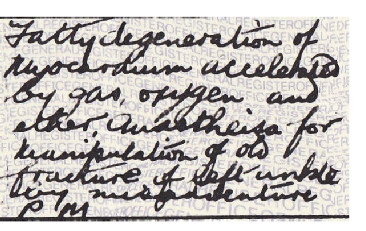 Fatty degeneration of
Myocardium accelerated
by gas, oxygen and
ether, Anaesthesia for
manipulation of old
fracture of left ankle
by misadventure
P. M.